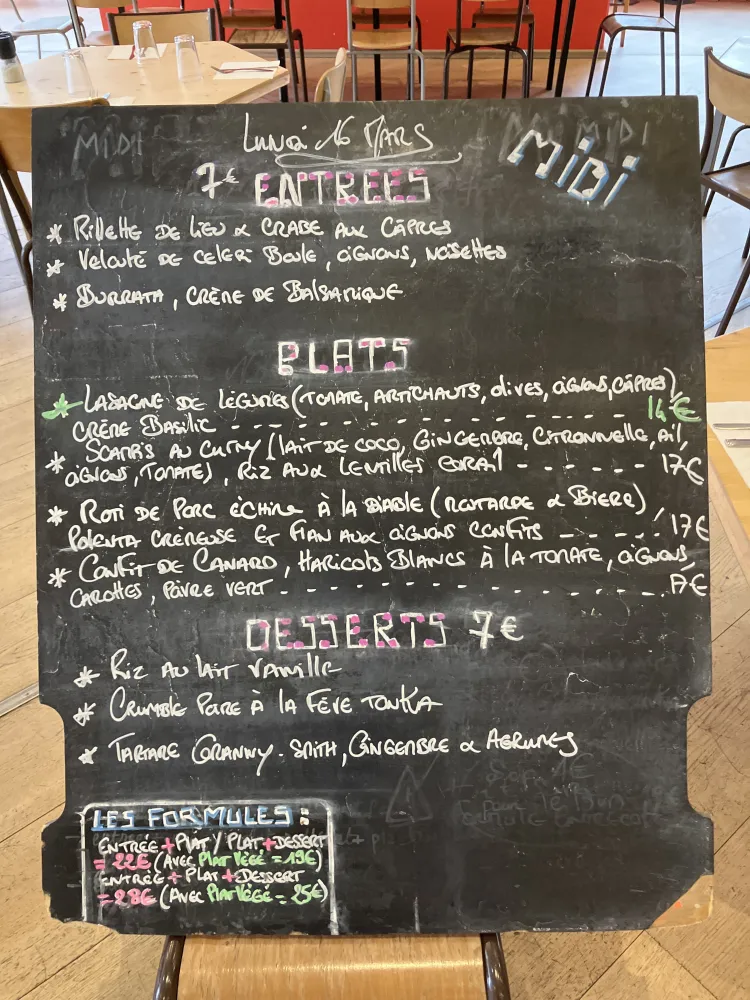 MIDI
LUNDI 16 MARS
MIDI
MiDi
7€ ENTREES
* RILLETTE DE LIEU & CRABE AUX CÂPRES
* VELOUTÉ DE CELERI BOULE, OIGNONS, NOISETTES
* BURRATA, CRÈME DE BALSAMIQUE
PLATS
* LASAGNE DE LÉGUMES (TOMATE, ARTICHAUTS, OLIVES, OIGNONS, CÂPRES),
CRÈME BASILIC - - - - - - - - - - - - - - - 14€
* SCAMPIS AU CURRY (LAIT DE COCO, GINGEMBRE, CITRONNELLE, AIL,
OIGNONS, TOMATE), RIZ AUX LENTILLES CORAIL - - - - - - 17€
* ROTI DE PORC ÉCHINE À LA DIABLE (MOUTARDE & BIERE),
POLENTA CRÈMEUSE ET FLAN AUX OIGNONS CONFITS - - - - - 17€
* CONFIT DE CANARD, HARICOTS BLANCS À LA TOMATE, OIGNONS,
CAROTTES, POIVRE VERT - - - - - - - - - - - - - - - 17€
DESSERTS 7€
* RIZ AU LAIT VANILLE
* CRUMBLE POIRE À LA FÈVE TONKA
* TARTARE GRANNY-SMITH, GINGEMBRE & AGRUMES
LES FORMULES :
ENTRÉE + PLAT / PLAT + DESSERT
= 22€ (AVEC PLAT VÉGÉ = 19€)
ENTRÉE + PLAT + DESSERT
= 28€ (AVEC PLAT VÉGÉ = 25€)